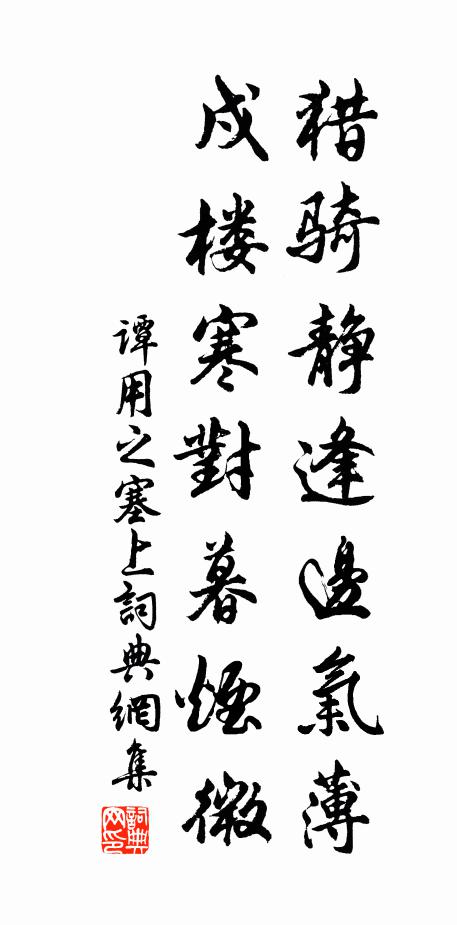 猎骑静逢邊氣薄
戍楼寒對暮煙微
谭用之塞上詞典網集
詞典网印